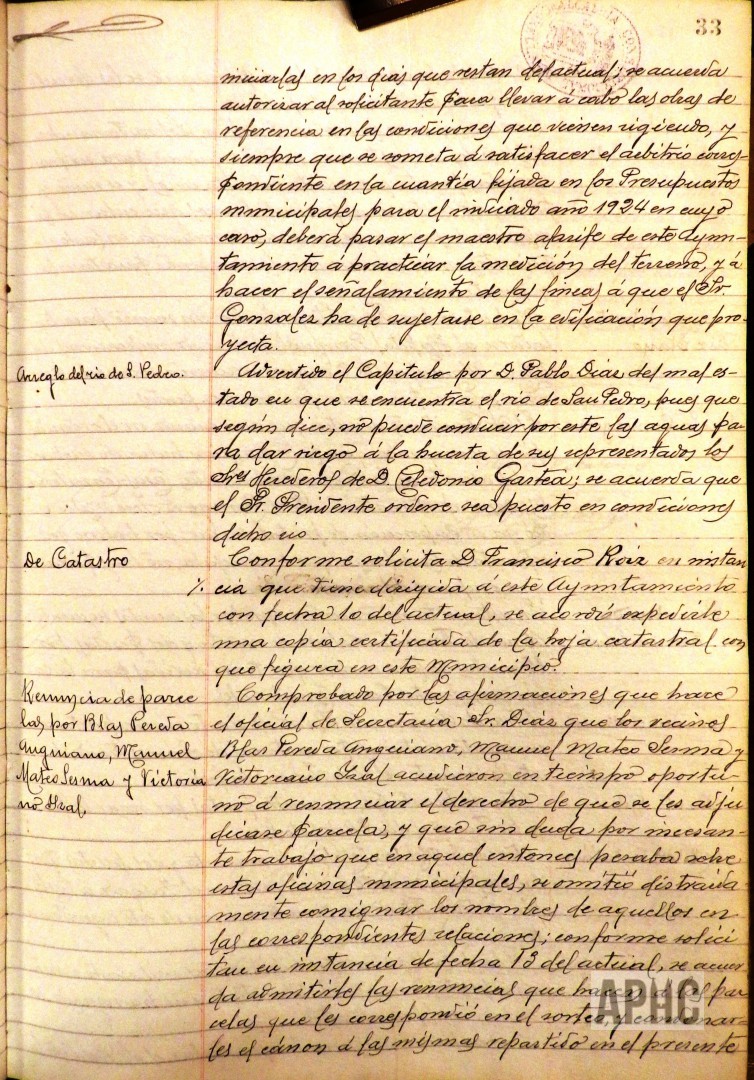 33
iniciarlas en los dias que restan del actual; se acuerda
autorizar al solicitante para llevar á cabo las obras de
referencia en las condiciones que vienen rigiendo, y
siempre que se someta á satisfacer el arbitrio corres-
pondiente en la cuantía fijada en los Presupuestos
municipales para el indicado año 1924 en cuyo
caso, deberá pasar el maestro alarife de este Ayun-
tamiento á practicar la medición del terreno, y á
hacer el señalamiento de las lineas á que el Sr.
Gonzalez ha de sujetarse en la edificación que pro-
yecta.
Arreglo del rio de S. Pedro.
Advertido el Capitulo por D. Pablo Díaz del mal es-
tado en que se encuentra el rio de San Pedro, pues que
según dice, no puede conducir por este las aguas pa-
ra dar riego á la huerta de sus representados los
Sres Herederos de D. Celedonio Gastea; se acuerda que
el Sr. Presidente ordene sea puesto en condiciones
dicho rio
De Catastro
Conforme solicita D Francisco Roiz en instan
cia que tiene dirigida á este Ayuntamiento
con fecha 10 del actual, se acordó expedirle
una copia certificada de la hoja catastral con
que figura en este Municipio.
Renuncia de parce
las, por Blas Pereda
Anguiano, Manuel
Mateo Serma y Victoria
no Izal.
Comprobado por las afirmaciones que hace
el oficial de Secretaría Sr. Díaz que los vecinos
Blas Pereda Anguiano, Manuel Mateo Serma y
Victoriano Izal acudieron en tiempo oportu-
no á renunciar el derecho de que se les adju
dicase parcela, y que sin duda por incesan-
te trabajo que en aquel entonces pesaba sobre
estas oficinas municipales, se omitió distraida
mente consignar los nombres de aquellos en
las correspondientes relaciones; conforme solici
tan en instancia de fecha 13 del actual, se acuer
da admitirles las renuncias que hacen de las par
celas que les correspondió en el sorteo, y condonar-
les el cánon á las mismas repartido en el presente
APHC